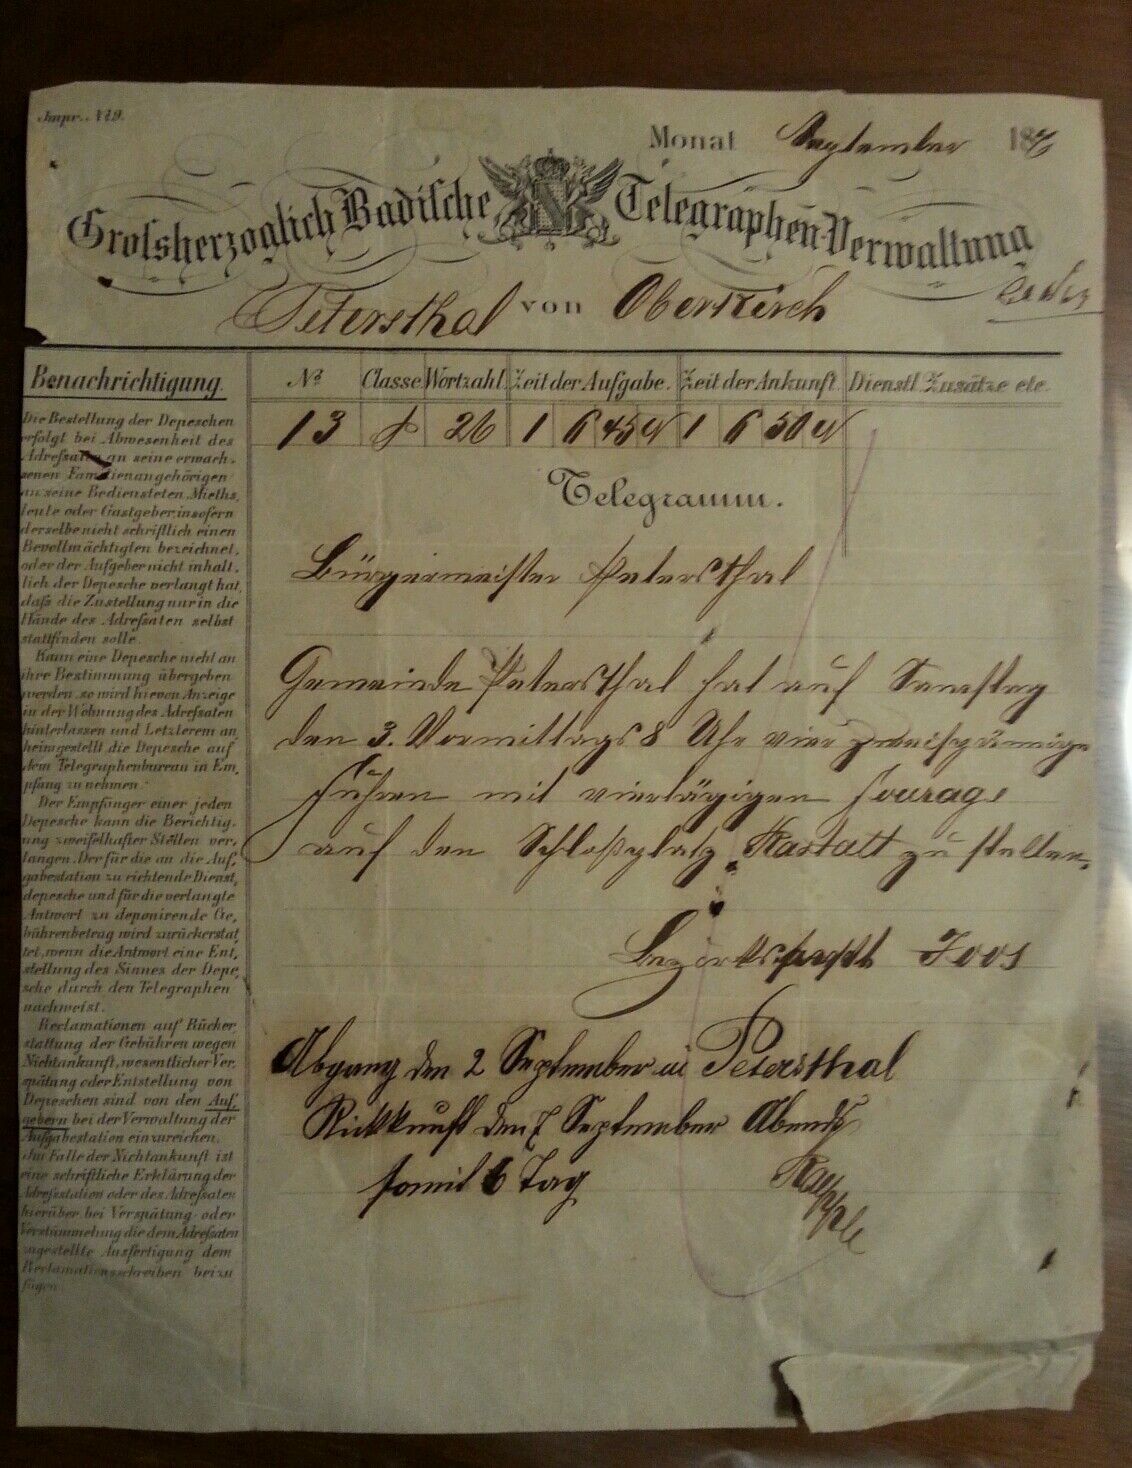 Impr. 119.
Monat September 1870
Grossherzoglich Badische Telegraphen-Verwaltung
Petersthal von Oberkirch
Benachrichtigung.
Die Bestellung der Depeschen
erfolgt bei Abwesenheit des
Adressaten an seine erwach-
senen Familienangehörigen
an seine Bediensteten, Mieths-
leute oder Gastgeber, insofern
derselbe nicht schriftlich einen
Bevollmächtigten bezeichnet,
oder der Aufgeber nicht inhalt-
lich der Depesche verlangt hat,
dass die Zustellung nur in die
Hände des Adressaten selbst
stattfinden solle.
Kann eine Depesche nicht an
ihre Bestimmung übergeben
werden, so wird hievon Anzeige
in der Wohnung des Adressaten
hinterlassen und Letzterem an-
heimgestellt die Depesche auf
dem Telegraphenbureau in Em-
pfang zu nehmen.
Der Empfänger einer jeden
Depesche kann die Berichtig-
ung zweifelhafter Stellen ver-
langen. Der für die an die Auf-
gabestation zu richtende Dienst-
depesche und für die verlangte
Antwort zu deponirende Ge-
bührenbetrag wird zurückerstat-
tet, wenn die Antwort eine Ent-
stellung des Sinnes der Depe-
sche durch den Telegraphen
nachweist.
Reclamationen auf Rücker-
stattung der Gebühren wegen
Nichtankunft, wesentlicher Ver-
spätung oder Entstellung von
Depeschen sind von den Auf-
gebern bei der Verwaltung der
Aufgabestation einzureichen.
Im Falle der Nichtankunft ist
eine schriftliche Erklärung der
Adressstation oder des Adressaten
hierüber bei Verspätung oder
Verstümmelung die dem Adressaten
zugestellte Ausfertigung dem
Reclamationsschreiben beizu-
fügen.
No Classe Wortzahl. Zeit der Aufgabe. Zeit der Ankunft. Dienstl. Zusätze etc.
13 26 1 6 45 1 6 50
Telegramm.
Bürgermeister Petersthal
Gemeinde Petersthal hat auf Samstag
den 3. Vormittags 8 Uhr vier zweispännige
Fuhren mit viertägigen Fourage
auf den Schloßplatz Rastatt zu stellen.
Bezirksamt Joos
Abgang den 2 September in Petersthal
Rückkunft den 7 September Abends
somit 6 Tag